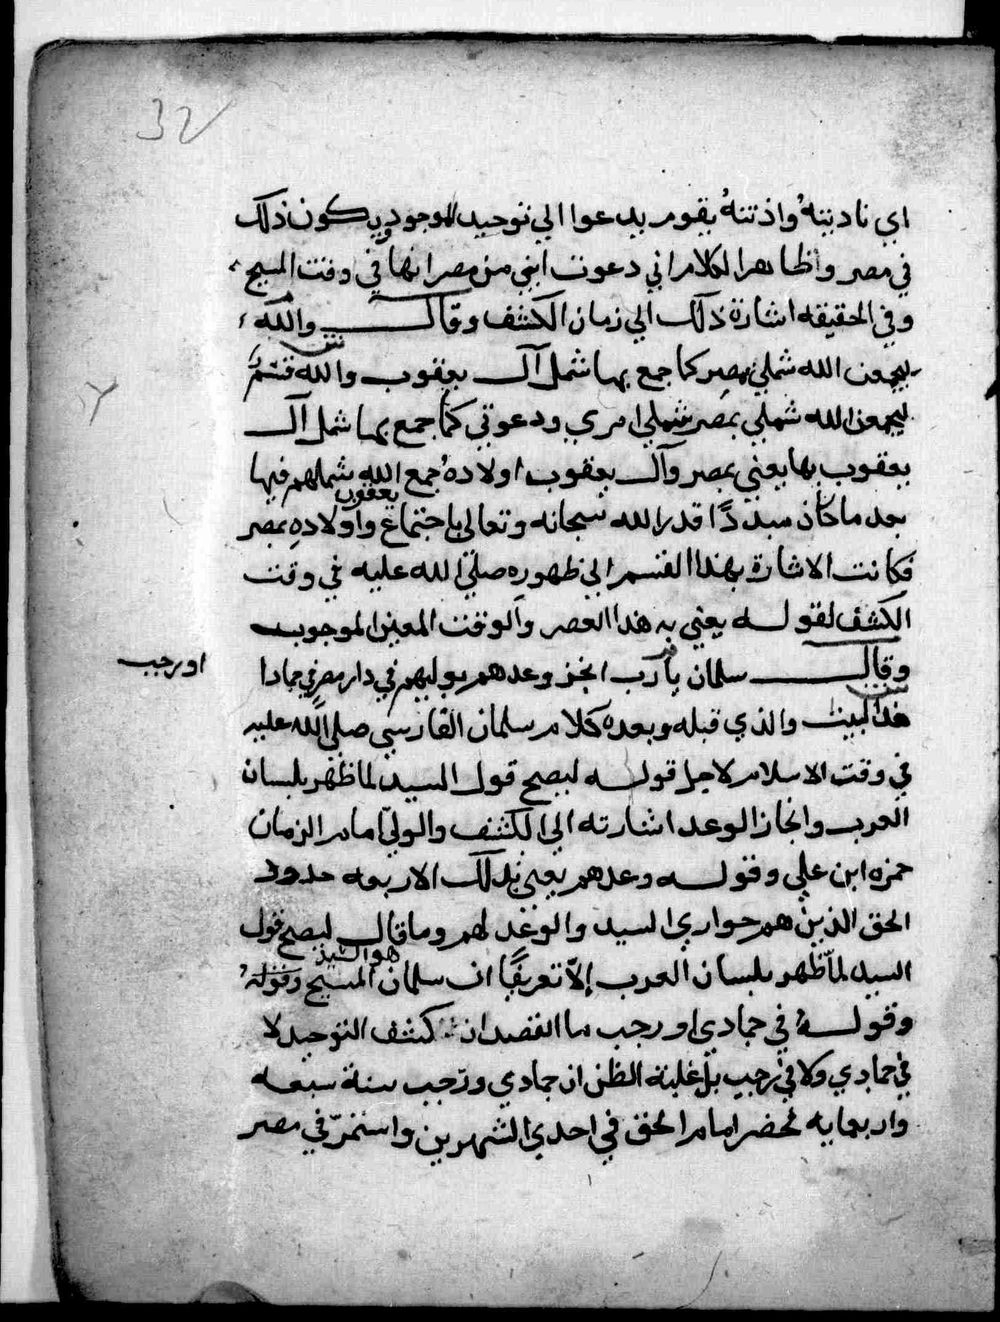 32
اي ناديته واذنته بقوم يدعوا الي توحيد الموجود ويكون ذلك
في مصر وظاهر الكلام اني دعوت ابني من مصر انها في وقت المسيح
وفي الحقيقه اشارة ذلك الي زمان الكشف وقال والله
ليجمعن الله شملي بمصر كما جمع بها شمل آل يعقوب والله قسم
ش
ليجمعن الله شملي بمصر شملي امري ودعوتي كما جمع بها شمل آل
يعقوب بها يعني بمصر وآل يعقوب اولاده جمع الله شملهم فيها
بعد ما كان مبددًا قدر الله سبحانه وتعالي باجتماع يعقوب واولاده بمصر
فكانت الاشارة بهذا القسم الي ظهوره صلي الله عليه في وقت
الكشف لقوله يعني به هذا العصر والوقت المعين الموجوب
وقال سلمان يا رب انجز وعدهم بوليهم في دار مصر في جمادا
او رجب
ش
هذا البيت والذي قبله وبعده كلام سلمان الفارسي صلي الله عليه
في وقت الاسلام لاجل قوله ليصح قول السيد لما ظهر بلسان
العرب وانجاز الوعد اشارته الي الكشف والولي امام الزمان
حمزه ابن علي وقوله وعدهم يعني بذلك الاربعه حدود
الحق الذين هم حواري السيد والوعد لهم وما قال ليصح قول
السيد لما ظهر بلسان العرب إلاّ تعريفًا ان سلمان هو السيد المسيح وقوله
وقوله في جمادي او رجب ما القصد ان كشف التوحيد لا
في جمادي ولا في رجب بل غلبة الظن ان جمادي ورجب سنة سبعه
واربعمايه لحضر امام الحق في احدي الشهرين واستمرّ في مصر